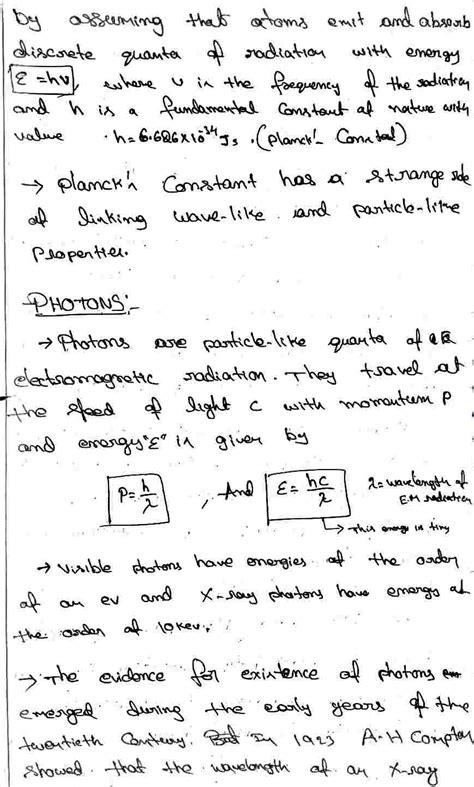 by assuming that atoms emit and absorb
discrete quanta of radiation with energy
ε = hν, where ν is the frequency of the radiation
and h is a fundamental constant of nature with
value h = 6.626×10^-34 Js. (Planck's Constant)
→ Planck's Constant has a strange side
of linking wave-like and particle-like
properties.
PHOTONS:-
→ Photons are particle-like quanta of
electromagnetic radiation. They travel at
the speed of light c with momentum P
and energy "ε" is given by
P = h/λ , And ε = hc/λ λ = wavelength of
E.M radiation
→ This energy is tiny
→ Visible photons have energies of the order
of an eV and X-ray photons have energy of
the order of 10keV.
→ The evidence for existence of photons
emerged during the early years of the
twentieth Century. But In 1923 A.H Compton
showed that the wavelength of an X-ray